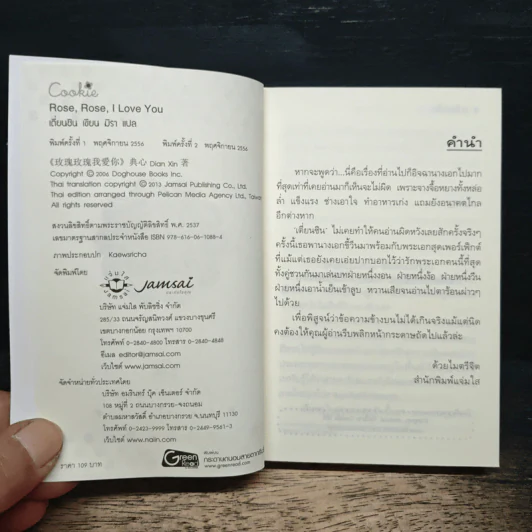 Cookie
Rose, Rose, I Love You
เตี่ยนซิน เขียน มิรา แปล
พิมพ์ครั้งที่ 1 พฤศจิกายน 2556 พิมพ์ครั้งที่ 2 พฤศจิกายน 2556
《玫瑰玫瑰我愛你》 典心 Dian Xin 著
Copyright © 2006 Doghouse Books Inc.
Thai translation copyright © 2013 Jamsai Publishing Co., Ltd.
Thai edition arranged through Pelican Media Agency Ltd., Taiwan
สงวนลิขสิทธิ์ตามพระราชบัญญัติลิขสิทธิ์ พ.ศ. 2537
เลขมาตรฐานสากลประจำหนังสือ ISBN 978-616-06-1088-4
ภาพประกอบปก Kaewaricha
จัดพิมพ์โดย
jamsai
บริษัท แจ่มใส พับลิชชิ่ง จำกัด
285/33 ถนนจรัญสนิทวงศ์ แขวงบางขุนศรี
เขตบางกอกน้อย กรุงเทพฯ 10700
โทรศัพท์ 0-2840-4800 โทรสาร 0-2840-4848
อีเมล editor@jamsai.com
เว็บไซต์ www.jamsai.com
จัดจำหน่ายทั่วประเทศโดย
บริษัท อมรินทร์ บุ๊ค เซ็นเตอร์ จำกัด
108 หมู่ที่ 2 ถนนบางกรวย-จงถนอม
ตำบลมหาสวัสดิ์ อำเภอบางกรวย จ.นนทบุรี 11130
โทรศัพท์ 0-2423-9999 โทรสาร 0-2449-9561-3
เว็บไซต์ www.naiin.com
ราคา 109 บาท
Green Read
กระดาษถนอมสายตา
www.greenread.com
คำนำ
หากจะพูดว่า...นี่คือเรื่องที่อ่านไปก็อิจฉานางเอกไปมาก
ที่สุดเท่าที่เคยอ่านมาก็เห็นจะไม่ผิด เพราะจางจื้อหยางทั้งหล่อ
ล่ำ แข็งแรง ช่างเอาใจ ทำอาหารเก่ง แถมยังอนาคตไกล
อีกต่างหาก
'เตี่ยนซิน' ไม่เคยทำให้คนอ่านผิดหวังเลยสักครั้งจริงๆ
ครั้งนี้เธอพานางเอกขี้วีนมาพร้อมกับพระเอกสุดเพอร์เฟ็กต์
ที่แม้แต่เธอยังเคยเอ่ยปากบอกไว้ว่ารักพระเอกคนนี้ที่สุด
ทั้งคู่ชวนกันมาเล่นบทฝ่ายหนึ่งงอน ฝ่ายหนึ่งง้อ ฝ่ายหนึ่งวีน
ฝ่ายหนึ่งเอาน้ำเย็นเข้าลูบ หวานเสียจนอ่านไปตาร้อนผ่าวๆ
ไปด้วย
เพื่อพิสูจน์ว่าข้อความข้างบนไม่ได้เกินจริงแม้แต่นิด
คงต้องให้คุณผู้อ่านรีบพลิกหน้ากระดาษถัดไปแล้วล่ะ
ด้วยไมตรีจิต
สำนักพิมพ์แจ่มใส